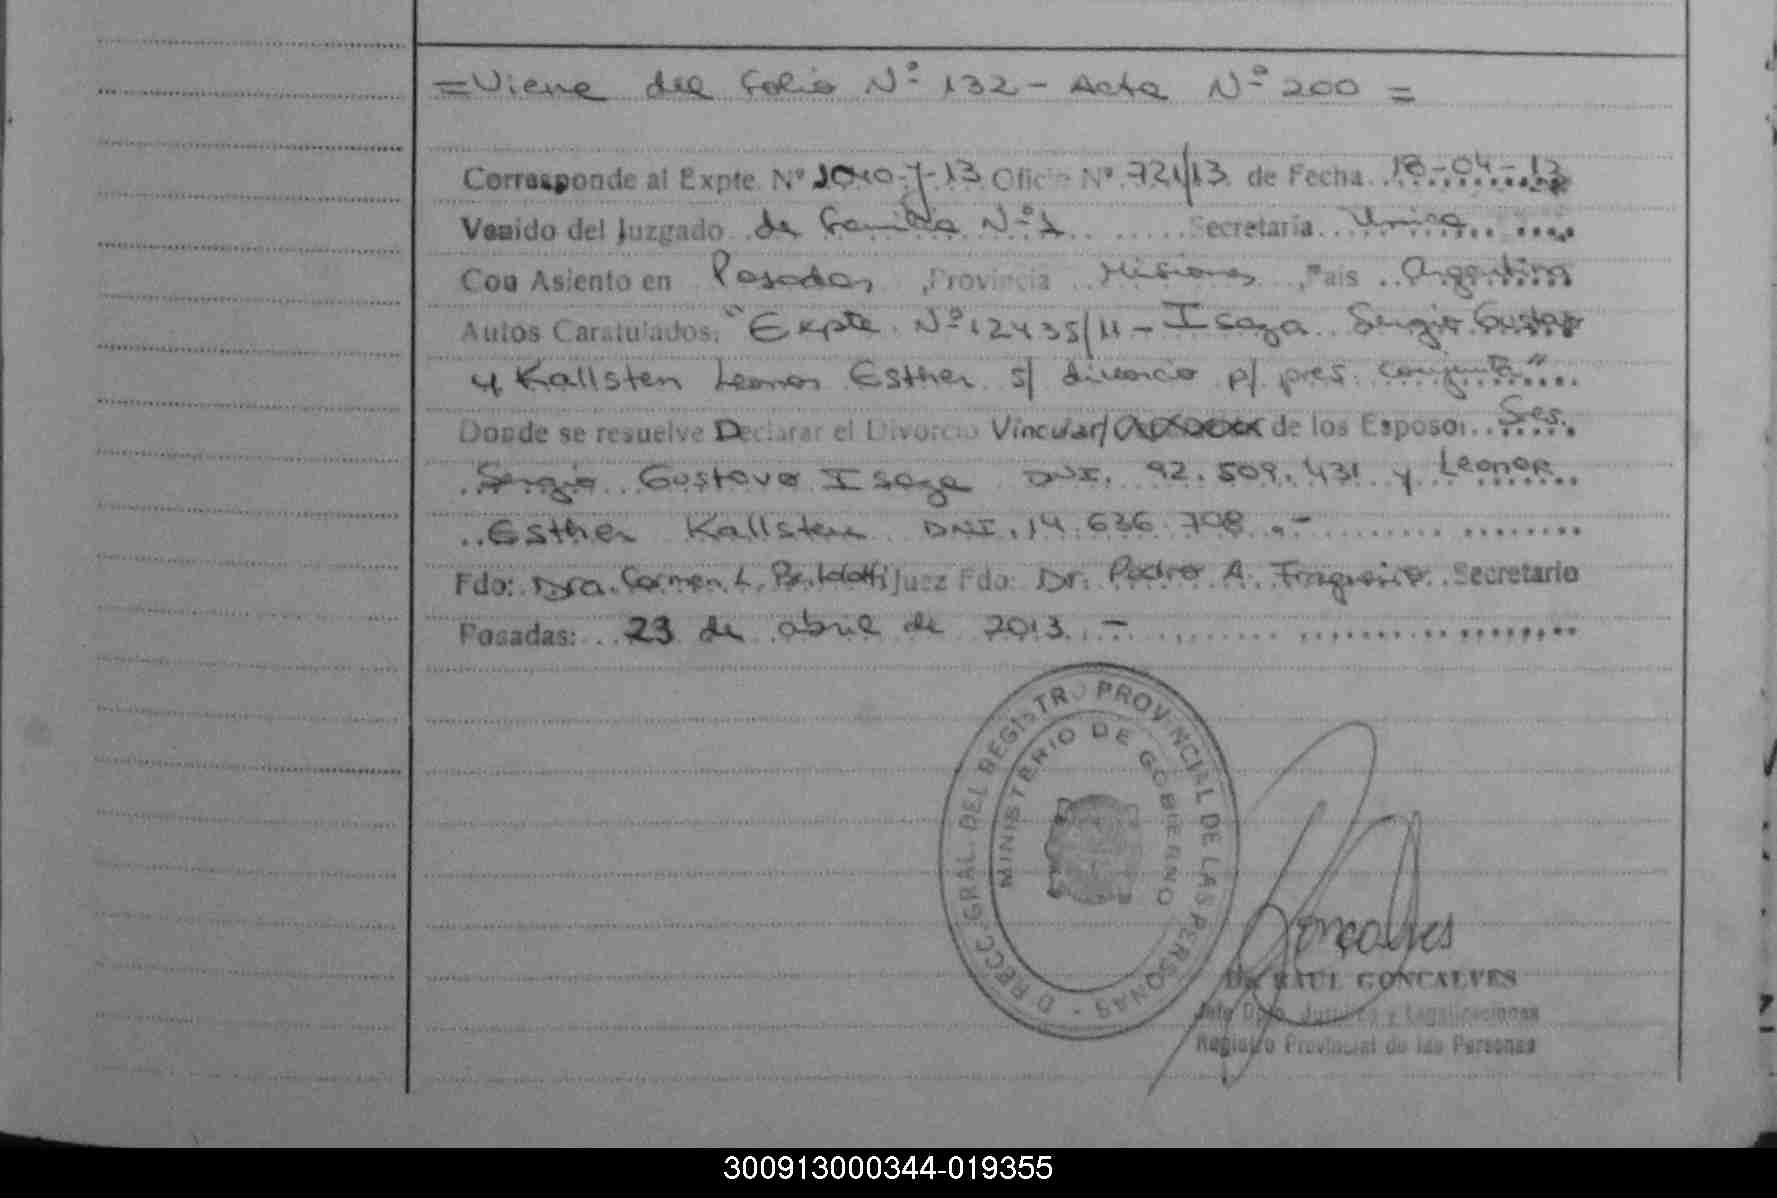 =Viene del folio Nº 132 - Acta Nº 200 =
Corresponde al Expte. Nº 1010-J-13 Oficio Nº 721/13 de Fecha 18-04-13
Venido del Juzgado de Familia Nº 1 Secretaria Unica
Con Asiento en Posadas, Provincia Misiones, Pais Argentina
Autos Caratulados: "Expte Nº 12435/11 - Isaza Sergio Gustavo
y Kallsten Leonor Esther s/ divorcio p/ pres. conjunta"
Donde se resuelve Declarar el Divorcio Vincular/ de los Esposos Sres.
Sergio Gustavo Isaza DNI. 92.509.431 y Leonor
Esther Kallsten DNI. 14.636.708.-
Fdo: Dra. Carmen L. Juez Fdo: Dr. Pedro A. Fragueiro Secretario
Posadas: 23 de abril de 2013.-
DIRECC. GRAL. DEL REGISTRO PROVINCIAL DE LAS PERSONAS -
MINISTERIO DE GOBIERNO
Goncalves
Dr. RAUL GONCALVES
Jefe Dpto. Jurídico y Legalizaciones
Registro Provincial de las Personas
300913000344-019355